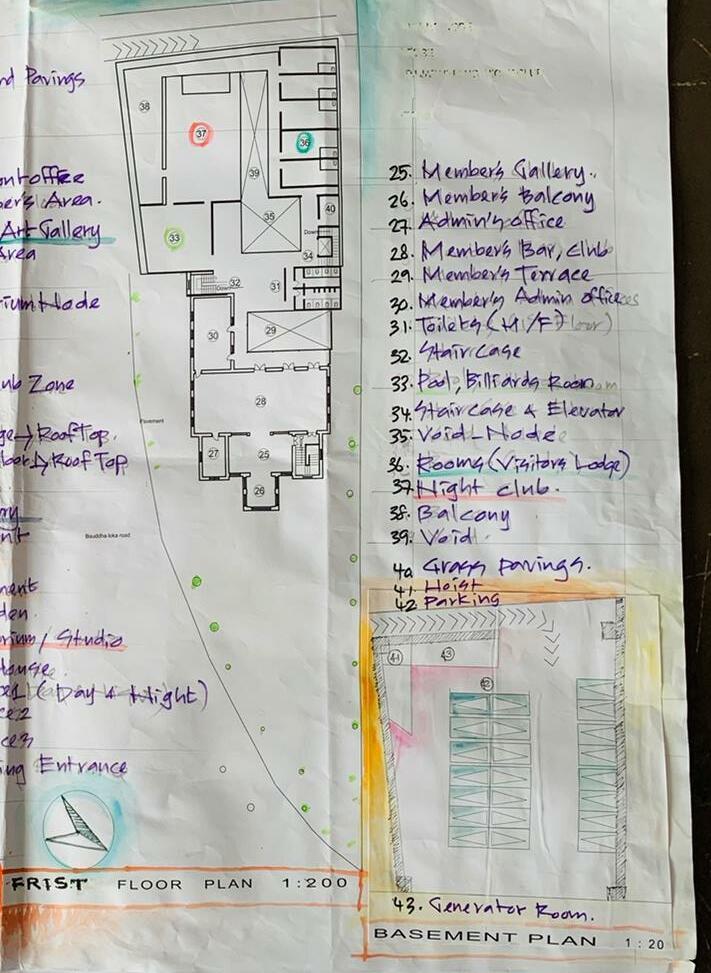 nd Pavings
ont office
ber's Area.
Art Gallery
Area
rium Node
ub Zone
ge → Roof Top.
loor → Roof Top
ry
nt
ment
den.
rium / Studio
House.
(Day & Night)
ce2
ce3
ng Entrance
38
37
36
39
40
35
33
Down
34
32
Down
31
30
29
28
27
25
26
Pavement
Bauddha loka road
FRIST FLOOR PLAN 1:200
25. Member's Gallery.
26. Member's Balcony
27. Admin's office
28. Member's Bar, club
29. Member's Terrace
30. Member's Admin offices
31. Toilets (M/F)
32. Stair case
33. Pool, Billiards Room
34. Stair case & Elevator
35. Void-Node
36. Rooms (Visitors Lodge)
37. Night club.
38. Balcony
39. Void.
40. Grass pavings.
41. Hoist
42. Parking
41
43
42
43. Generator Room.
BASEMENT PLAN 1:20